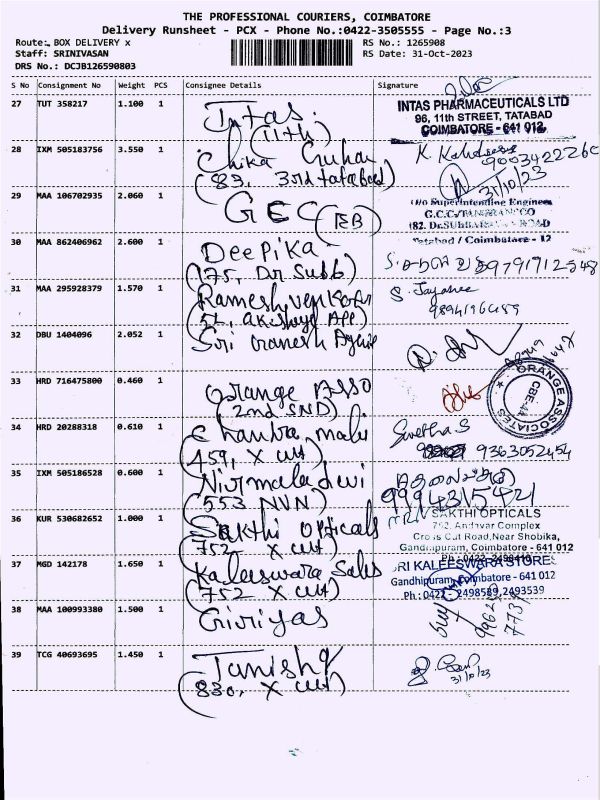 THE PROFESSIONAL COURIERS, COIMBATORE
Delivery Runsheet - PCX - Phone No.:0422-3505555 - Page No.:3
Route: BOX DELIVERY x RS No.: 1265908
Staff: SRINIVASAN RS Date: 31-Oct-2023
DRS No.: DCJB126590803
S No Consignment No Weight PCS Consignee Details Signature
27 TUT 358217 1.100 1 Intas
(11th)
INTAS PHARMACEUTICALS LTD
96, 11th STREET, TATABAD
COIMBATORE - 641 012.
28 IXM 505183756 3.550 1 Chika Guhan
(89, 3rd tatabad)
31/10/23
29 MAA 106702935 2.060 1 GEC (EB)
O/o Superintending Engineer
30 MAA 862406962 2.600 1 Deepika
(175, Dr Subb)
Tatabad / Coimbatore - 12
31 MAA 295928379 1.570 1 Ramesh
S. Jayashree
32 DBU 1404096 2.052 1 Sri
33 HRD 716475800 0.460 1 Orange Asso
(2nd SND)
ORANGE ASSOCIATES
34 HRD 20288318 0.610 1 Chandra mali
(459, X cut)
Swetha S
9363052454
35 IXM 505186528 0.600 1 Nirmala devi
(553 NVN)
9994315421
36 KUR 530682652 1.000 1 Sakthi opticals
(752 X cut)
SAKTHI OPTICALS
752, Andavar Complex
Cross Cut Road, Near Shobika,
Gandhipuram, Coimbatore - 641 012
37 MGD 142178 1.650 1 Kaleeswara Sales
(752 X cut)
SRI KALEESWARA STORES
Gandhipuram, Coimbatore - 641 012
Ph : 0422 - 2498589, 2493539
38 MAA 100993380 1.500 1 Giriyas
39 TCG 40693695 1.450 1 Tanishq
(830, X cut)
31/10/23